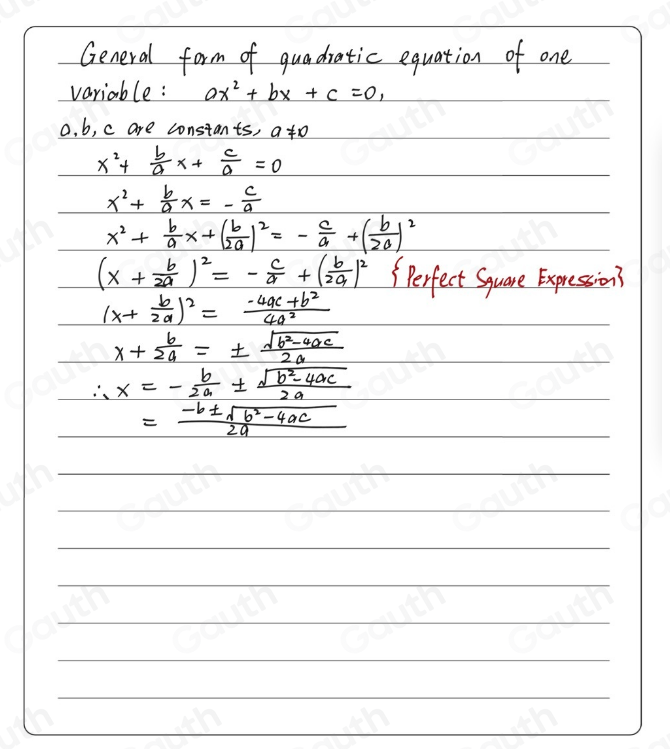 General form of quadratic equation of one
variable: ax² + bx + c = 0,
a, b, c are constants, a ≠ 0
x² + b/a x + c/a = 0
x² + b/a x = - c/a
x² + b/a x + (b/2a)² = - c/a + (b/2a)²
(x + b/2a)² = - c/a + (b/2a)² {Perfect Square Expression}
(x + b/2a)² = -4ac + b² / 4a²
x + b/2a = ± √b² - 4ac / 2a
∴ x = - b/2a ± √b² - 4ac / 2a
= -b ± √b² - 4ac / 2a
Gauth